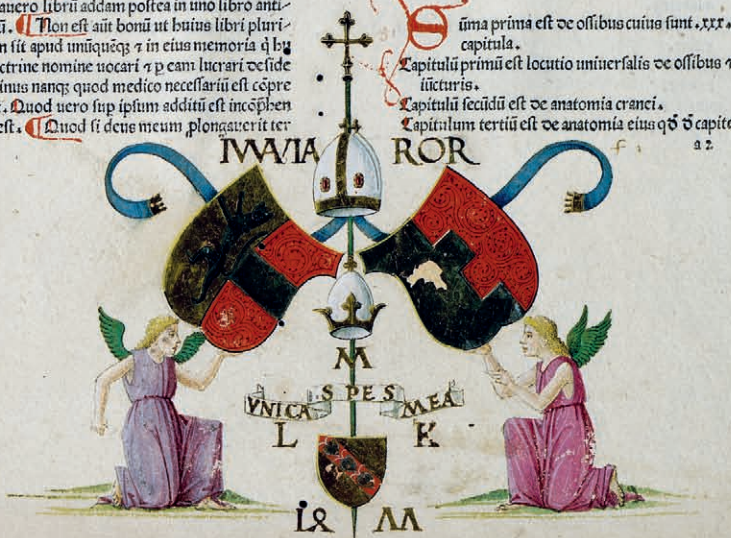 auero librū addam postea in uno libro anti-
ū. Non est aūt bonū ut huius libri pluri-
n sit apud unūquēqȝ ⁊ in eius memoria q̇ hu
ctrine nomine uocari ⁊ ꝑ eam lucrari deside
inus nanqȝ quod medico necessariū est cōpre
. Quod uero sup ipsum additū est incōp̄hen
est. Quod si deus meum ꝓlongauerit ter
ūma prima est de ossibus cuius sunt .xxx.
capitula.
Capitulū primū est locutio uniuersalis de ossibus ⁊
iūcturis.
Capitulū secūdū est de anatomia cranei.
Capitulum tertiū est de anatomia eius qđ đ capite
a 2
ROR
M
VNICA SPES MEA
L K